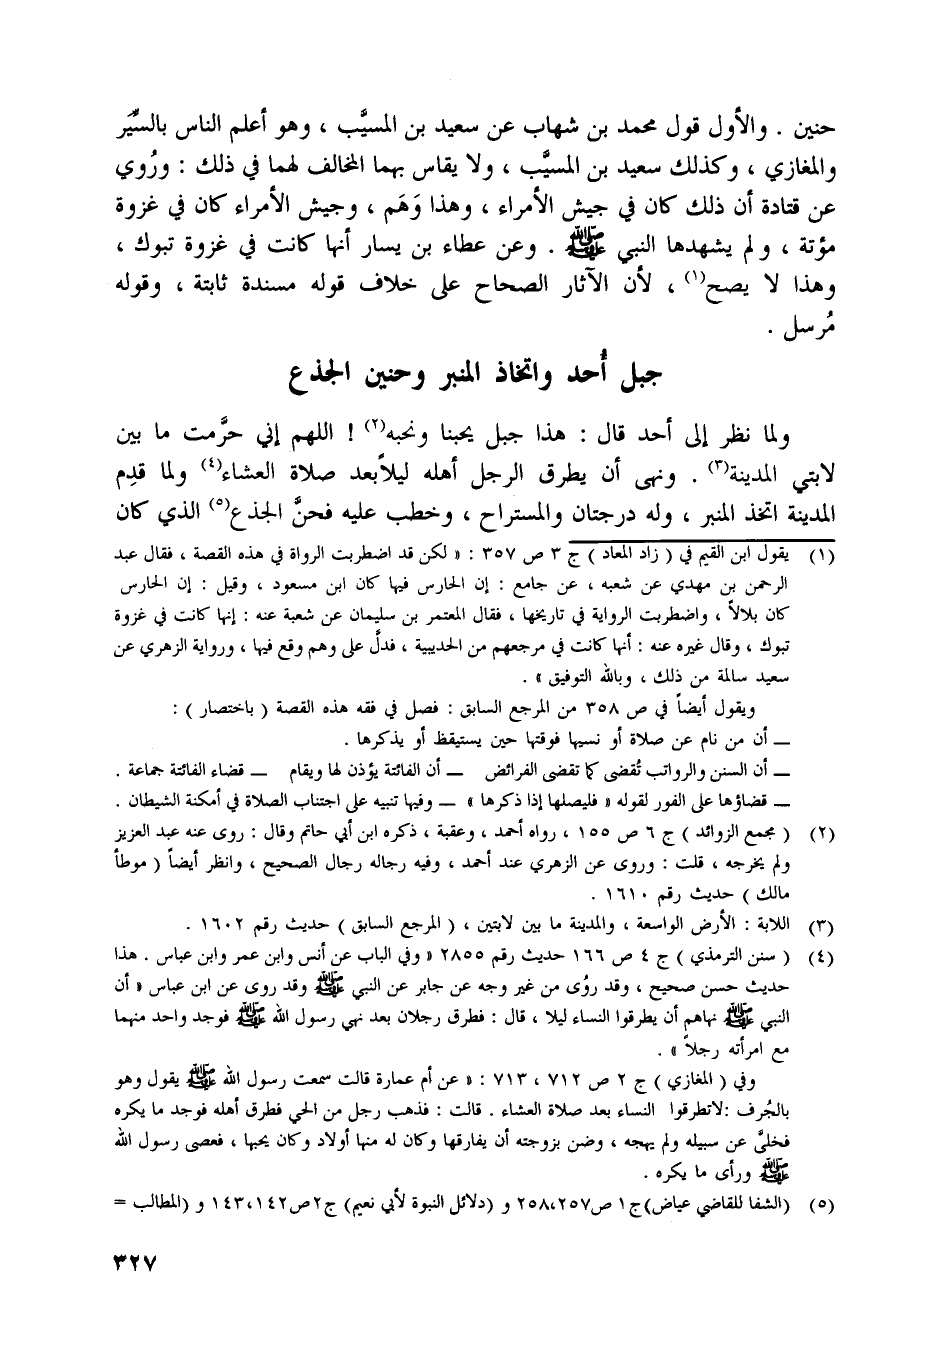 حنين . والأول قول محمد بن شهاب عن سعيد بن المسيَّب ، وهو أعلم الناس بالسِّيَر
والمغازي ، وكذلك سعيد بن المسيَّب ، ولا يقاس بهما المخالف لهما في ذلك : ورُوي
عن قتادة أن ذلك كان في جيش الأمراء ، وهذا وَهَم ، وجيش الأمراء كان في غزوة
مؤتة ، ولم يشهدها النبي ﷺ . وعن عطاء بن يسار أنها كانت في غزوة تبوك ،
وهذا لا يصح(١) ، لأن الآثار الصحاح على خلاف قوله مسندة ثابتة ، وقوله
مُرسل .
جبل أُحد واتخاذ المنبر وحنين الجذع
ولما نظر إلى أحد قال : هذا جبل يحبنا ونحبه(٢) ! اللهم إني حرَّمت ما بين
لابتي المدينة(٣) . ونهى أن يطرق الرجل أهله ليلاً بعد صلاة العشاء(٤) ولما قدِم
المدينة اتخذ المنبر ، وله درجتان والمستراح ، وخطب عليه فحنَّ الجذع(٥) الذي كان
(١) يقول ابن القيم في ( زاد المعاد ) ج ٣ ص ٣٥٧ : « لكن قد اضطربت الرواة في هذه القصة ، فقال عبد
الرحمن بن مهدي عن شعبه ، عن جامع : إن الحارس فيها كان ابن مسعود ، وقيل : إن الحارس
كان بلالاً ، واضطربت الرواية في تاريخها ، فقال المعتمر بن سليمان عن شعبة عنه : إنها كانت في غزوة
تبوك ، وقال غيره عنه : أنها كانت في مرجعهم من الحديبية ، فدلَّ على وهم وقع فيها ، ورواية الزهري عن
سعيد سالمة من ذلك ، وبالله التوفيق » .
ويقول أيضاً في ص ٣٥٨ من المرجع السابق : فصل في فقه هذه القصة ( باختصار ) :
ــ أن من نام عن صلاة أو نسيها فوقتها حين يستيقظ أو يذكرها .
ــ أن السنن والرواتب تُقضى كما تقضى الفرائض ــ أن الفائتة يؤذن لها ويقام ــ قضاء الفائتة جماعة .
ــ قضاؤها على الفور لقوله « فليصلها إذا ذكرها » ــ وفيها تنبيه على اجتناب الصلاة في أمكنة الشيطان .
(٢) ( مجمع الزوائد ) ج ٦ ص ١٥٥ ، رواه أحمد ، وعقبة ، ذكره ابن أبي حاتم وقال : روى عنه عبد العزيز
ولم يخرجه ، قلت : وروى عن الزهري عند أحمد ، وفيه رجاله رجال الصحيح ، وانظر أيضاً ( موطأ
مالك ) حديث رقم ١٦١٠ .
(٣) اللابة : الأرض الواسعة ، والمدينة ما بين لابتين ، ( المرجع السابق ) حديث رقم ١٦٠٢ .
(٤) ( سنن الترمذي ) ج ٤ ص ١٦٦ حديث رقم ٢٨٥٥ « وفي الباب عن أنس وابن عمر وابن عباس . هذا
حديث حسن صحيح ، وقد رؤى من غير وجه عن جابر عن النبي ﷺ وقد روى عن ابن عباس « أن
النبي ﷺ نهاهم أن يطرقوا النساء ليلا ، قال : فطرق رجلان بعد نهي رسول الله ﷺ فوجد واحد منهما
مع امرأته رجلاً » .
وفي ( المغازي ) ج ٢ ص ٧١٢ ، ٧١٣ : « عن أم عمارة قالت سمعت رسول الله ﷺ يقول وهو
بالجُرف :لاتطرقوا النساء بعد صلاة العشاء . قالت : فذهب رجل من الحي فطرق أهله فوجد ما يكره
فخلىَّ عن سبيله ولم يهجه ، وضن بزوجته أن يفارقها وكان له منها أولاد وكان يحبها ، فعصى رسول الله
ﷺ ورأى ما يكره .
(٥) (الشفا للقاضي عياض)ج١ ص٢٥٧،٢٥٨ و (دلائل النبوة لأبي نعيم) ج٢ص١٤٢،١٤٣ و (المطالب =
٣٢٧